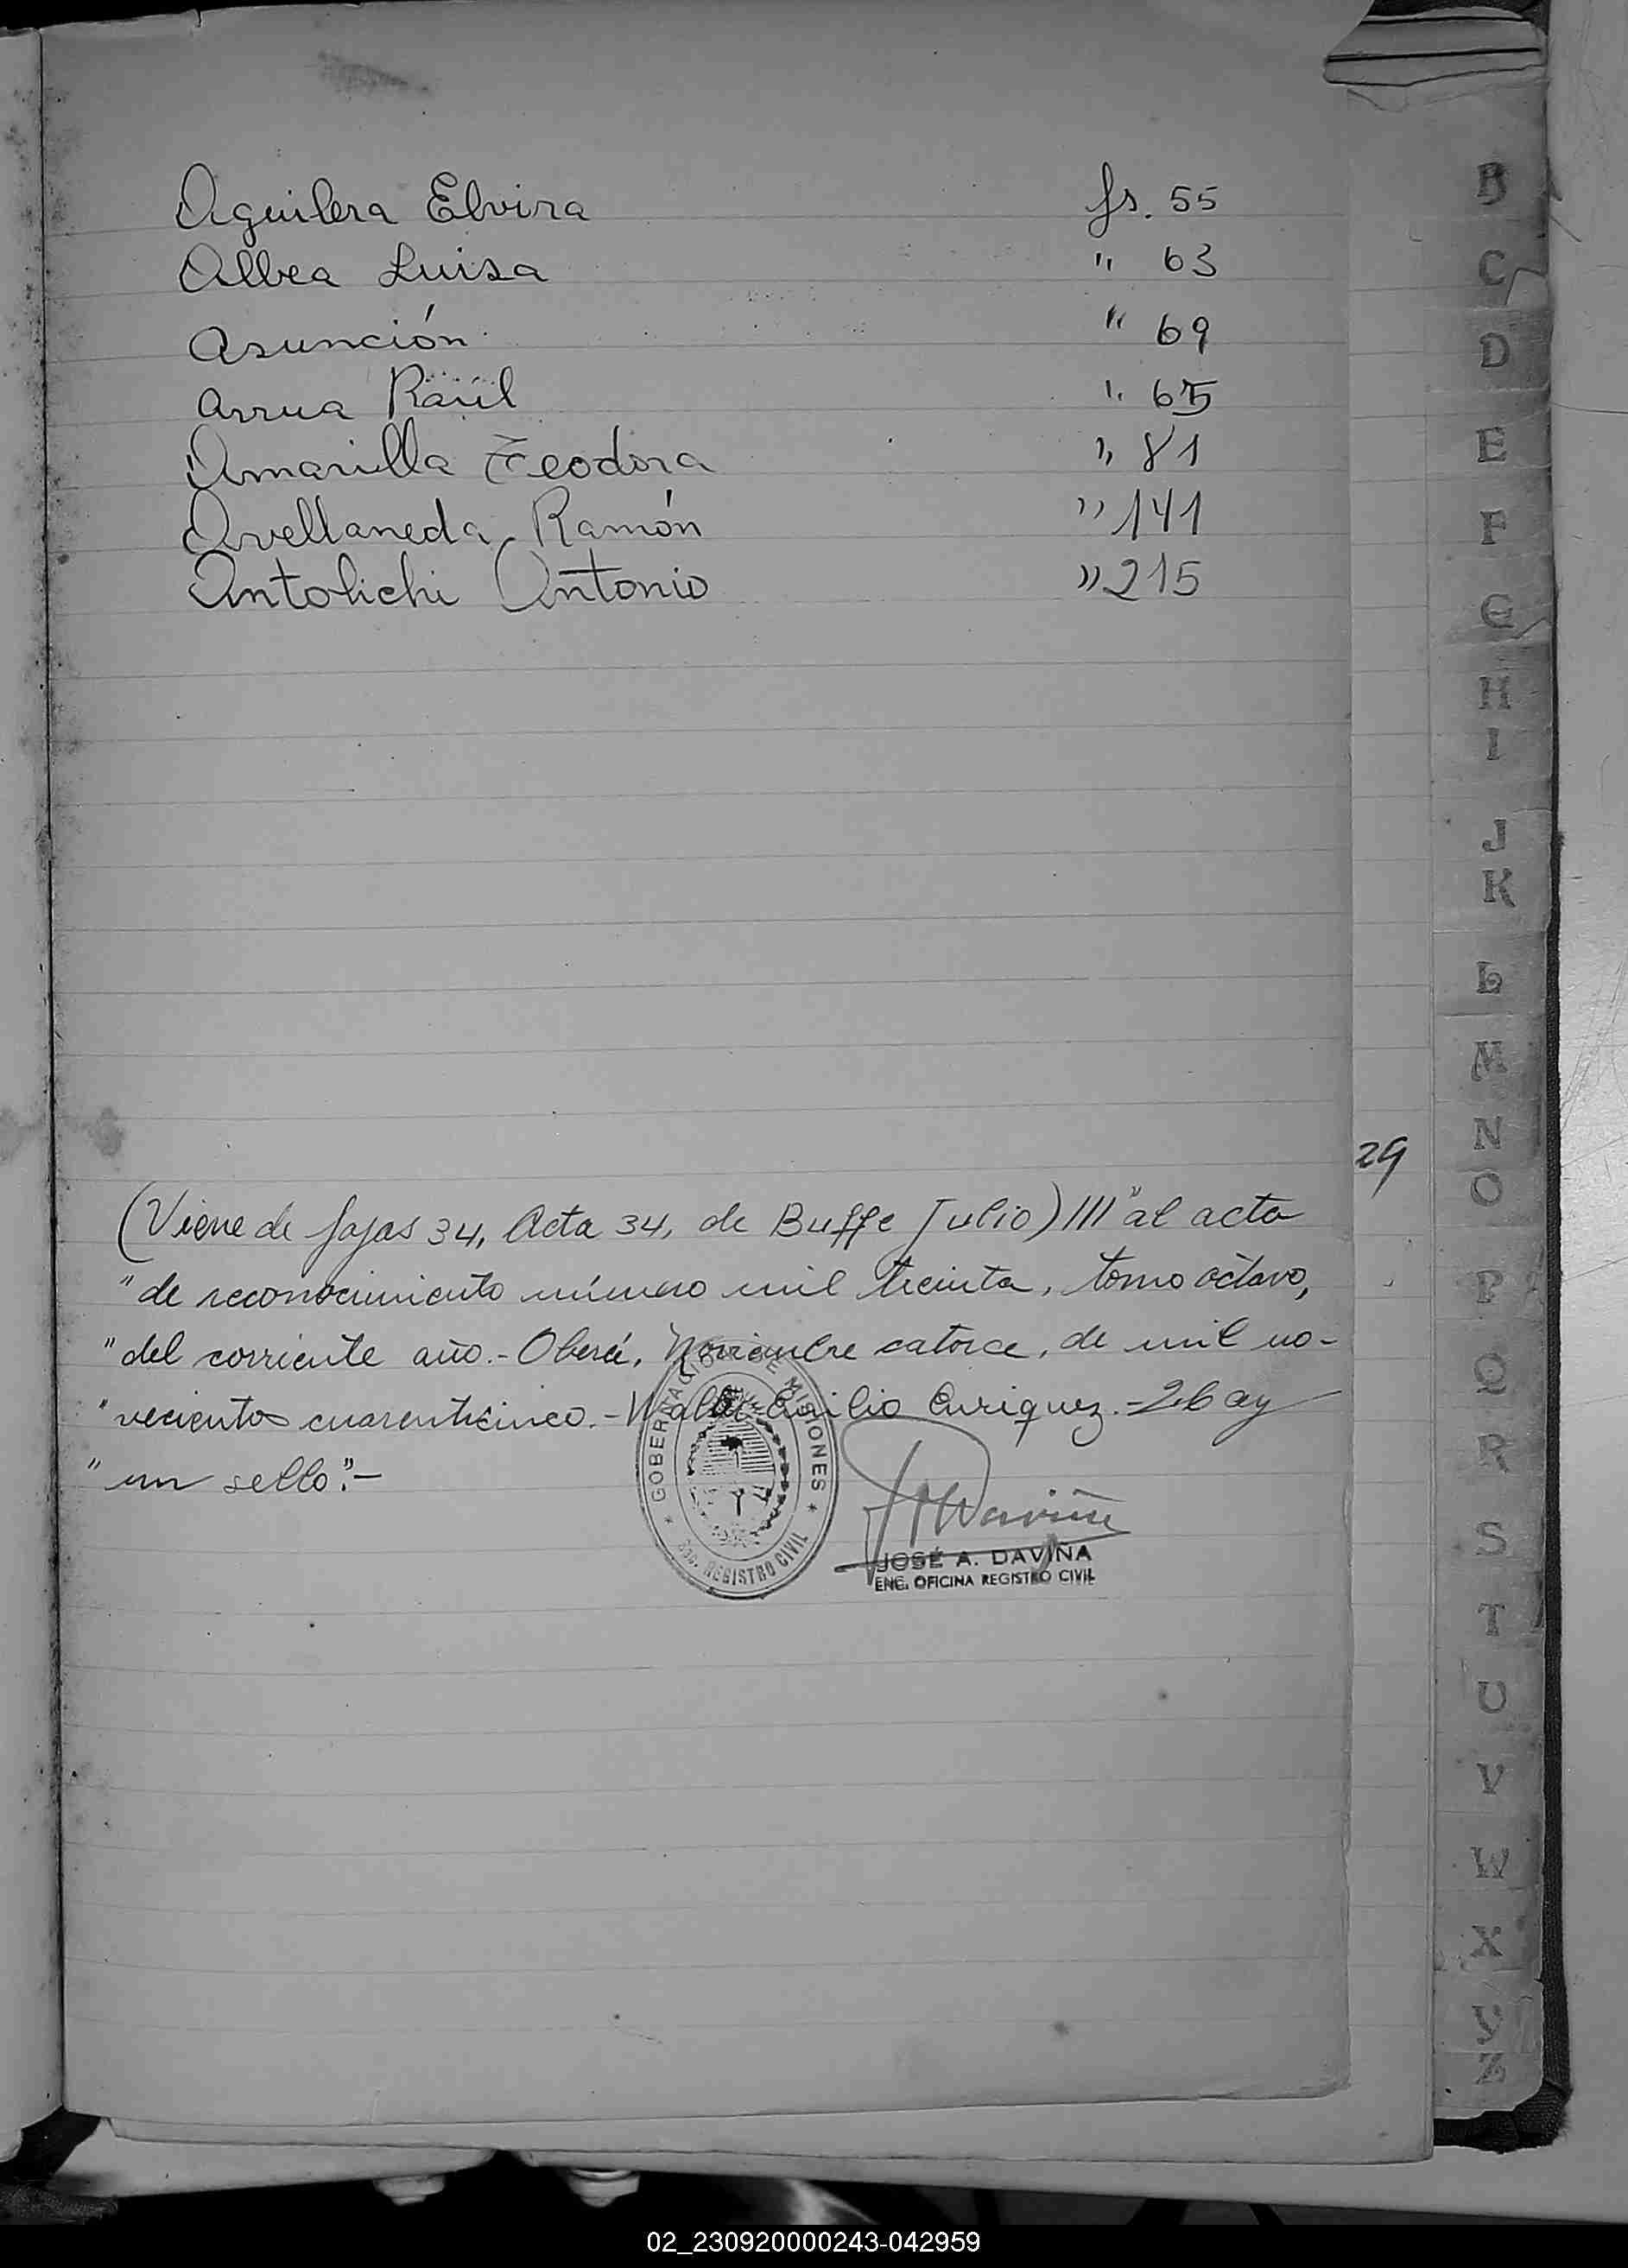 Aguilera Elvira fs. 55
Albea Luisa " 63
Asunción " 69
Arrua Raúl " 65
Amarilla Teodora " 81
Avellaneda Ramón " 141
Antolichi Antonio " 215
29
(Viene de fojas 34, Acta 34, de Buffe Julio) /// "al acta
"de reconocimiento número mil treinta, tomo octavo,
"del corriente año.- Oberá, Noviembre catorce, de mil no-
"vecientos cuarenticinco.- Emilio Enriquez.- Hay
"un sello".-
GOBERNACION DE MISIONES
REGISTRO CIVIL
JOSÉ A. DAVIÑA
ENC. OFICINA REGISTRO CIVIL
B
C
D
E
F
G
H
I
J
K
L
M
N
O
P
Q
R
S
T
U
V
W
X
Y
Z
02_230920000243-042959